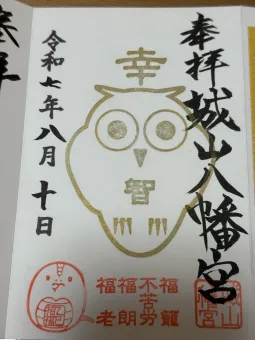 奉拝
城山八幡宮
幸
智
令和七年八月十日
福籠
不苦労
福朗
福老